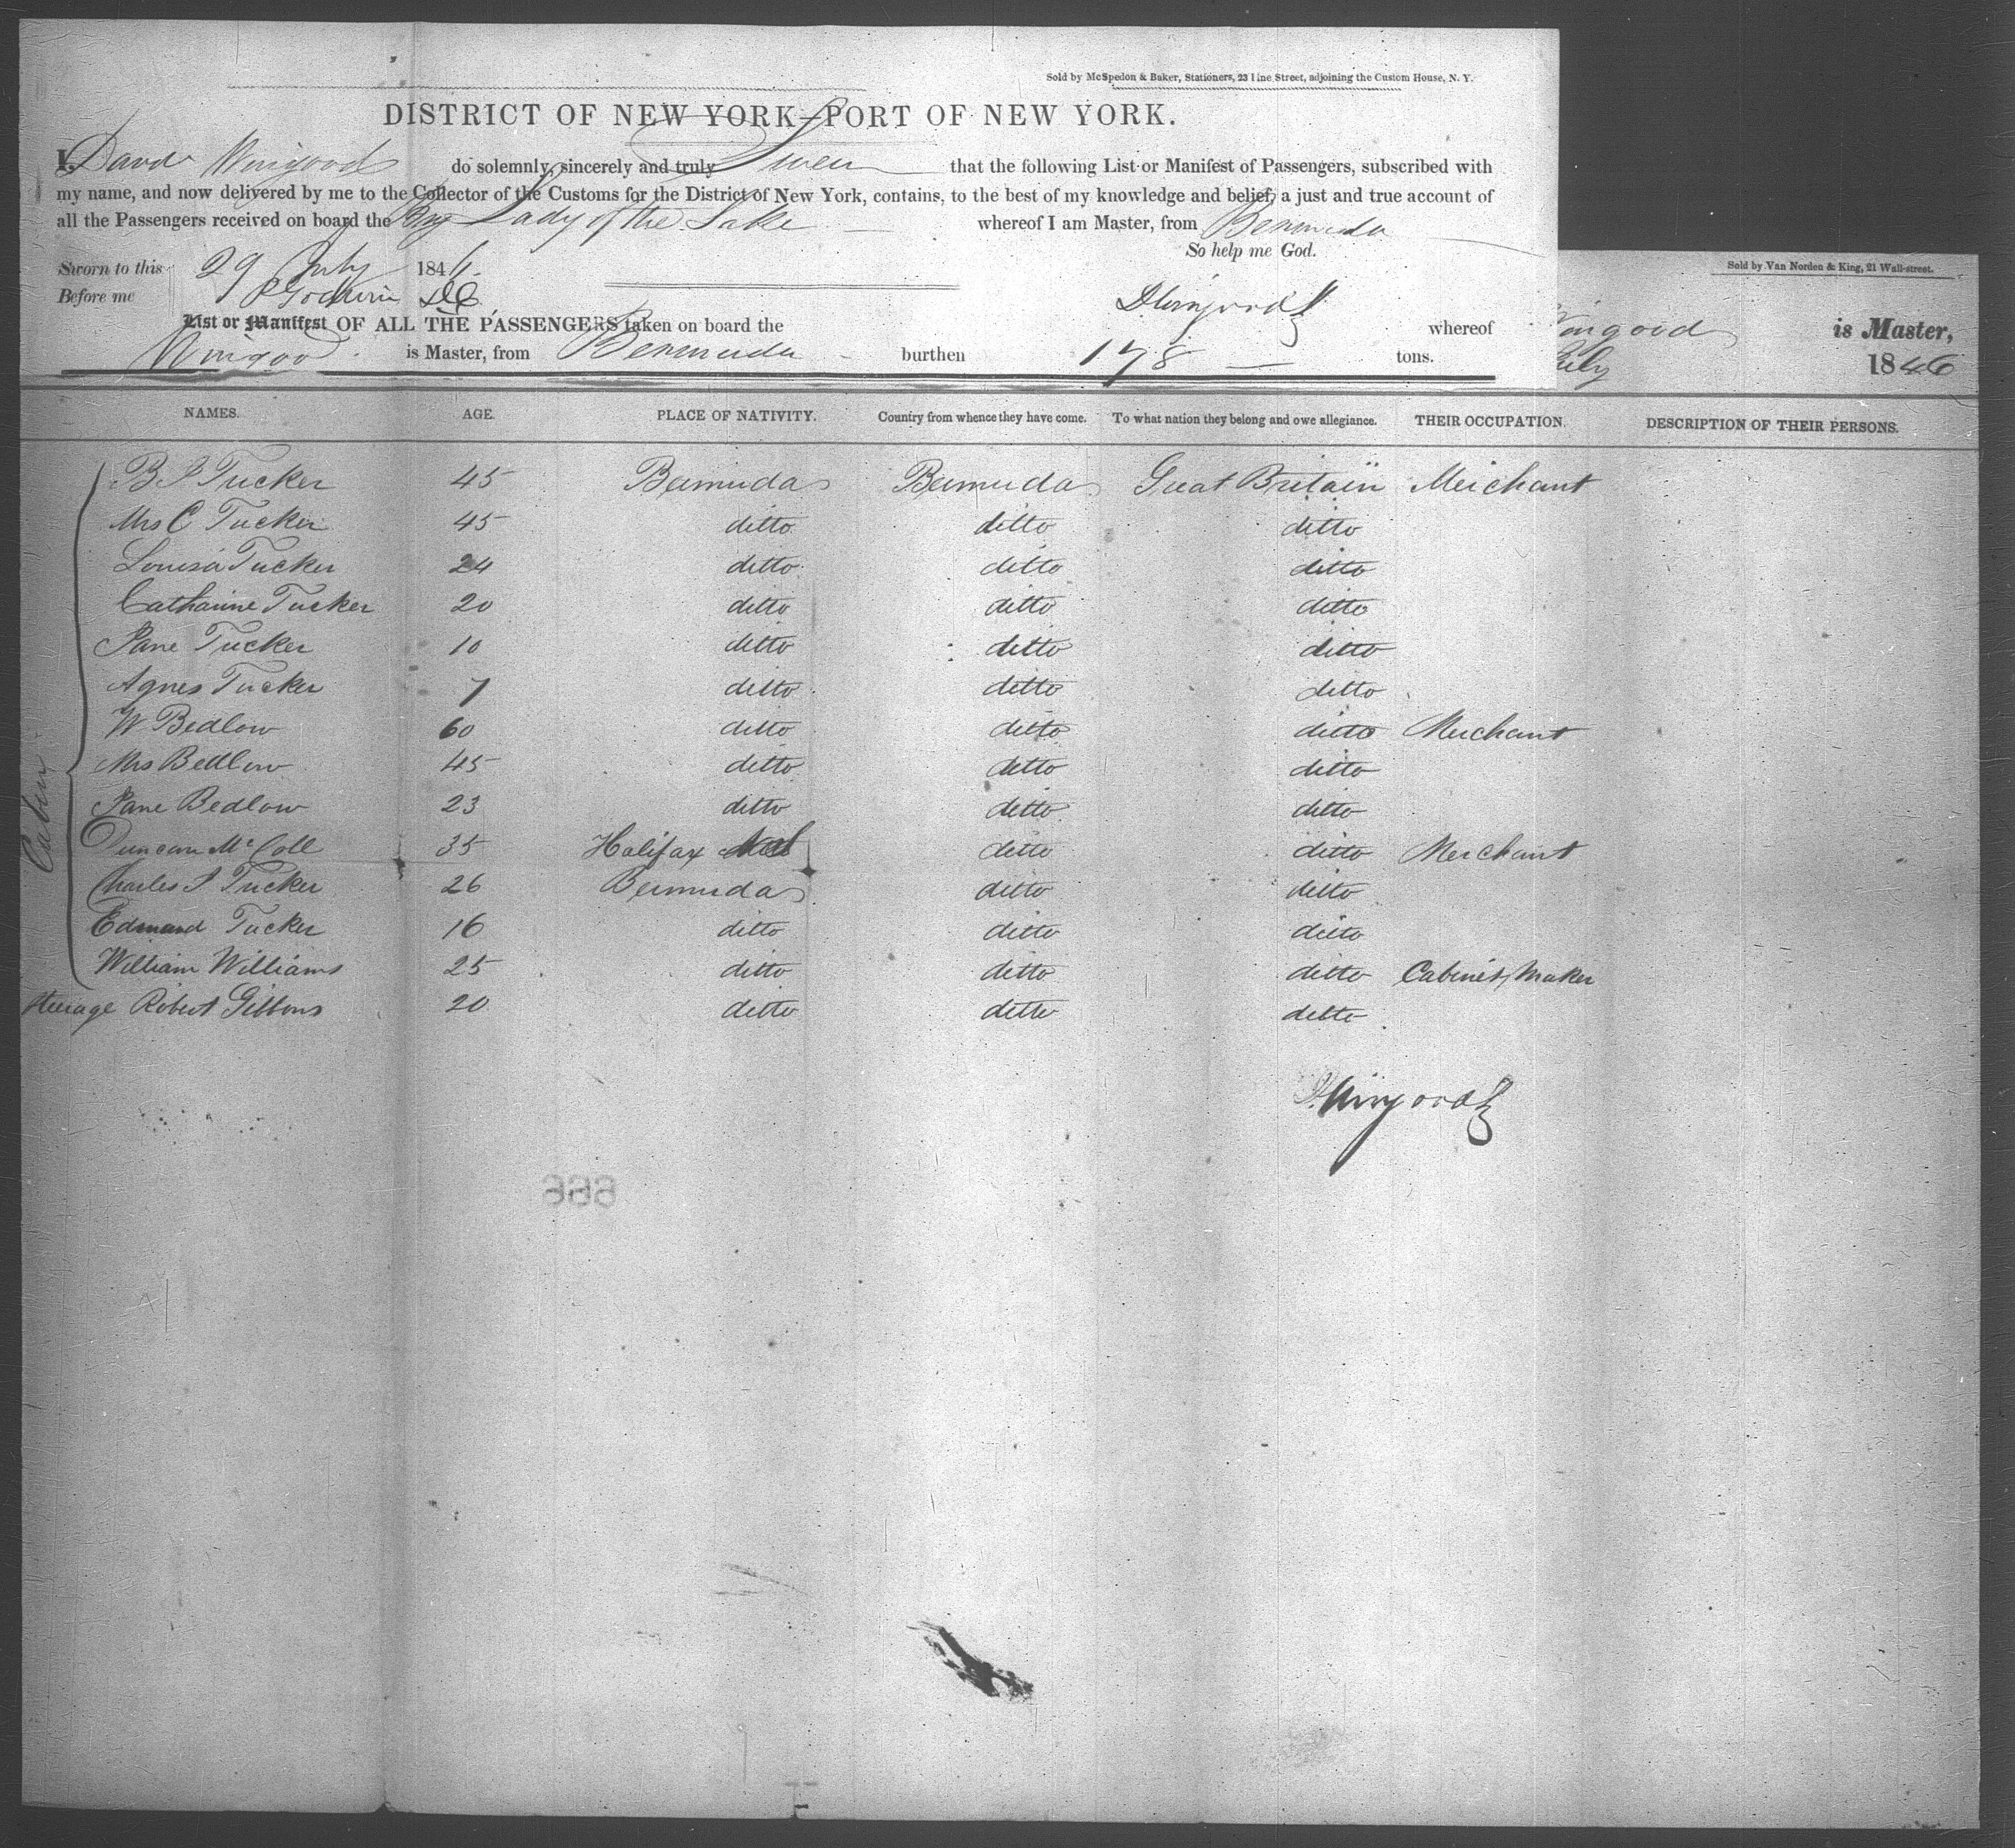 Sold by McSpedon & Baker, Stationers, 23 Pine Street, adjoining the Custom House, N. Y.
DISTRICT OF NEW YORK—PORT OF NEW YORK.
I, David Wingood do solemnly, sincerely and truly Swear that the following List or Manifest of Passengers, subscribed with
my name, and now delivered by me to the Collector of the Customs for the District of New York, contains, to the best of my knowledge and belief, a just and true account of
all the Passengers received on board the Brig Lady of the Lake whereof I am Master, from Bermuda
So help me God.
Sworn to this 29 July 1846
Before me
D Wingood
List or Manifest OF ALL THE PASSENGERS taken on board the whereof
Wingood is Master, from Bermuda burthen 178 tons.
Sold by Van Norden & King, 21 Wall-street.
Wingood is Master,
July 1846
NAMES. AGE. PLACE OF NATIVITY. Country from whence they have come. To what nation they belong and owe allegiance. THEIR OCCUPATION. DESCRIPTION OF THEIR PERSONS.
Cabin
B J Tucker 45 Bermuda Bermuda Great Britain Merchant
Mrs C Tucker 45 ditto ditto ditto
Louisa Tucker 24 ditto ditto ditto
Catharine Tucker 20 ditto ditto ditto
Jane Tucker 10 ditto ditto ditto
Agnes Tucker 7 ditto ditto ditto
W Bedlow 60 ditto ditto ditto Merchant
Mrs Bedlow 45 ditto ditto ditto
Jane Bedlow 23 ditto ditto ditto
Duncan McColl 35 Halifax ditto ditto Merchant
Charles J Tucker 26 Bermuda ditto ditto
Edmund Tucker 16 ditto ditto ditto
William Williams 25 ditto ditto ditto Cabinet Maker
Steerage Robert Gibbons 20 ditto ditto ditto
D Wingood